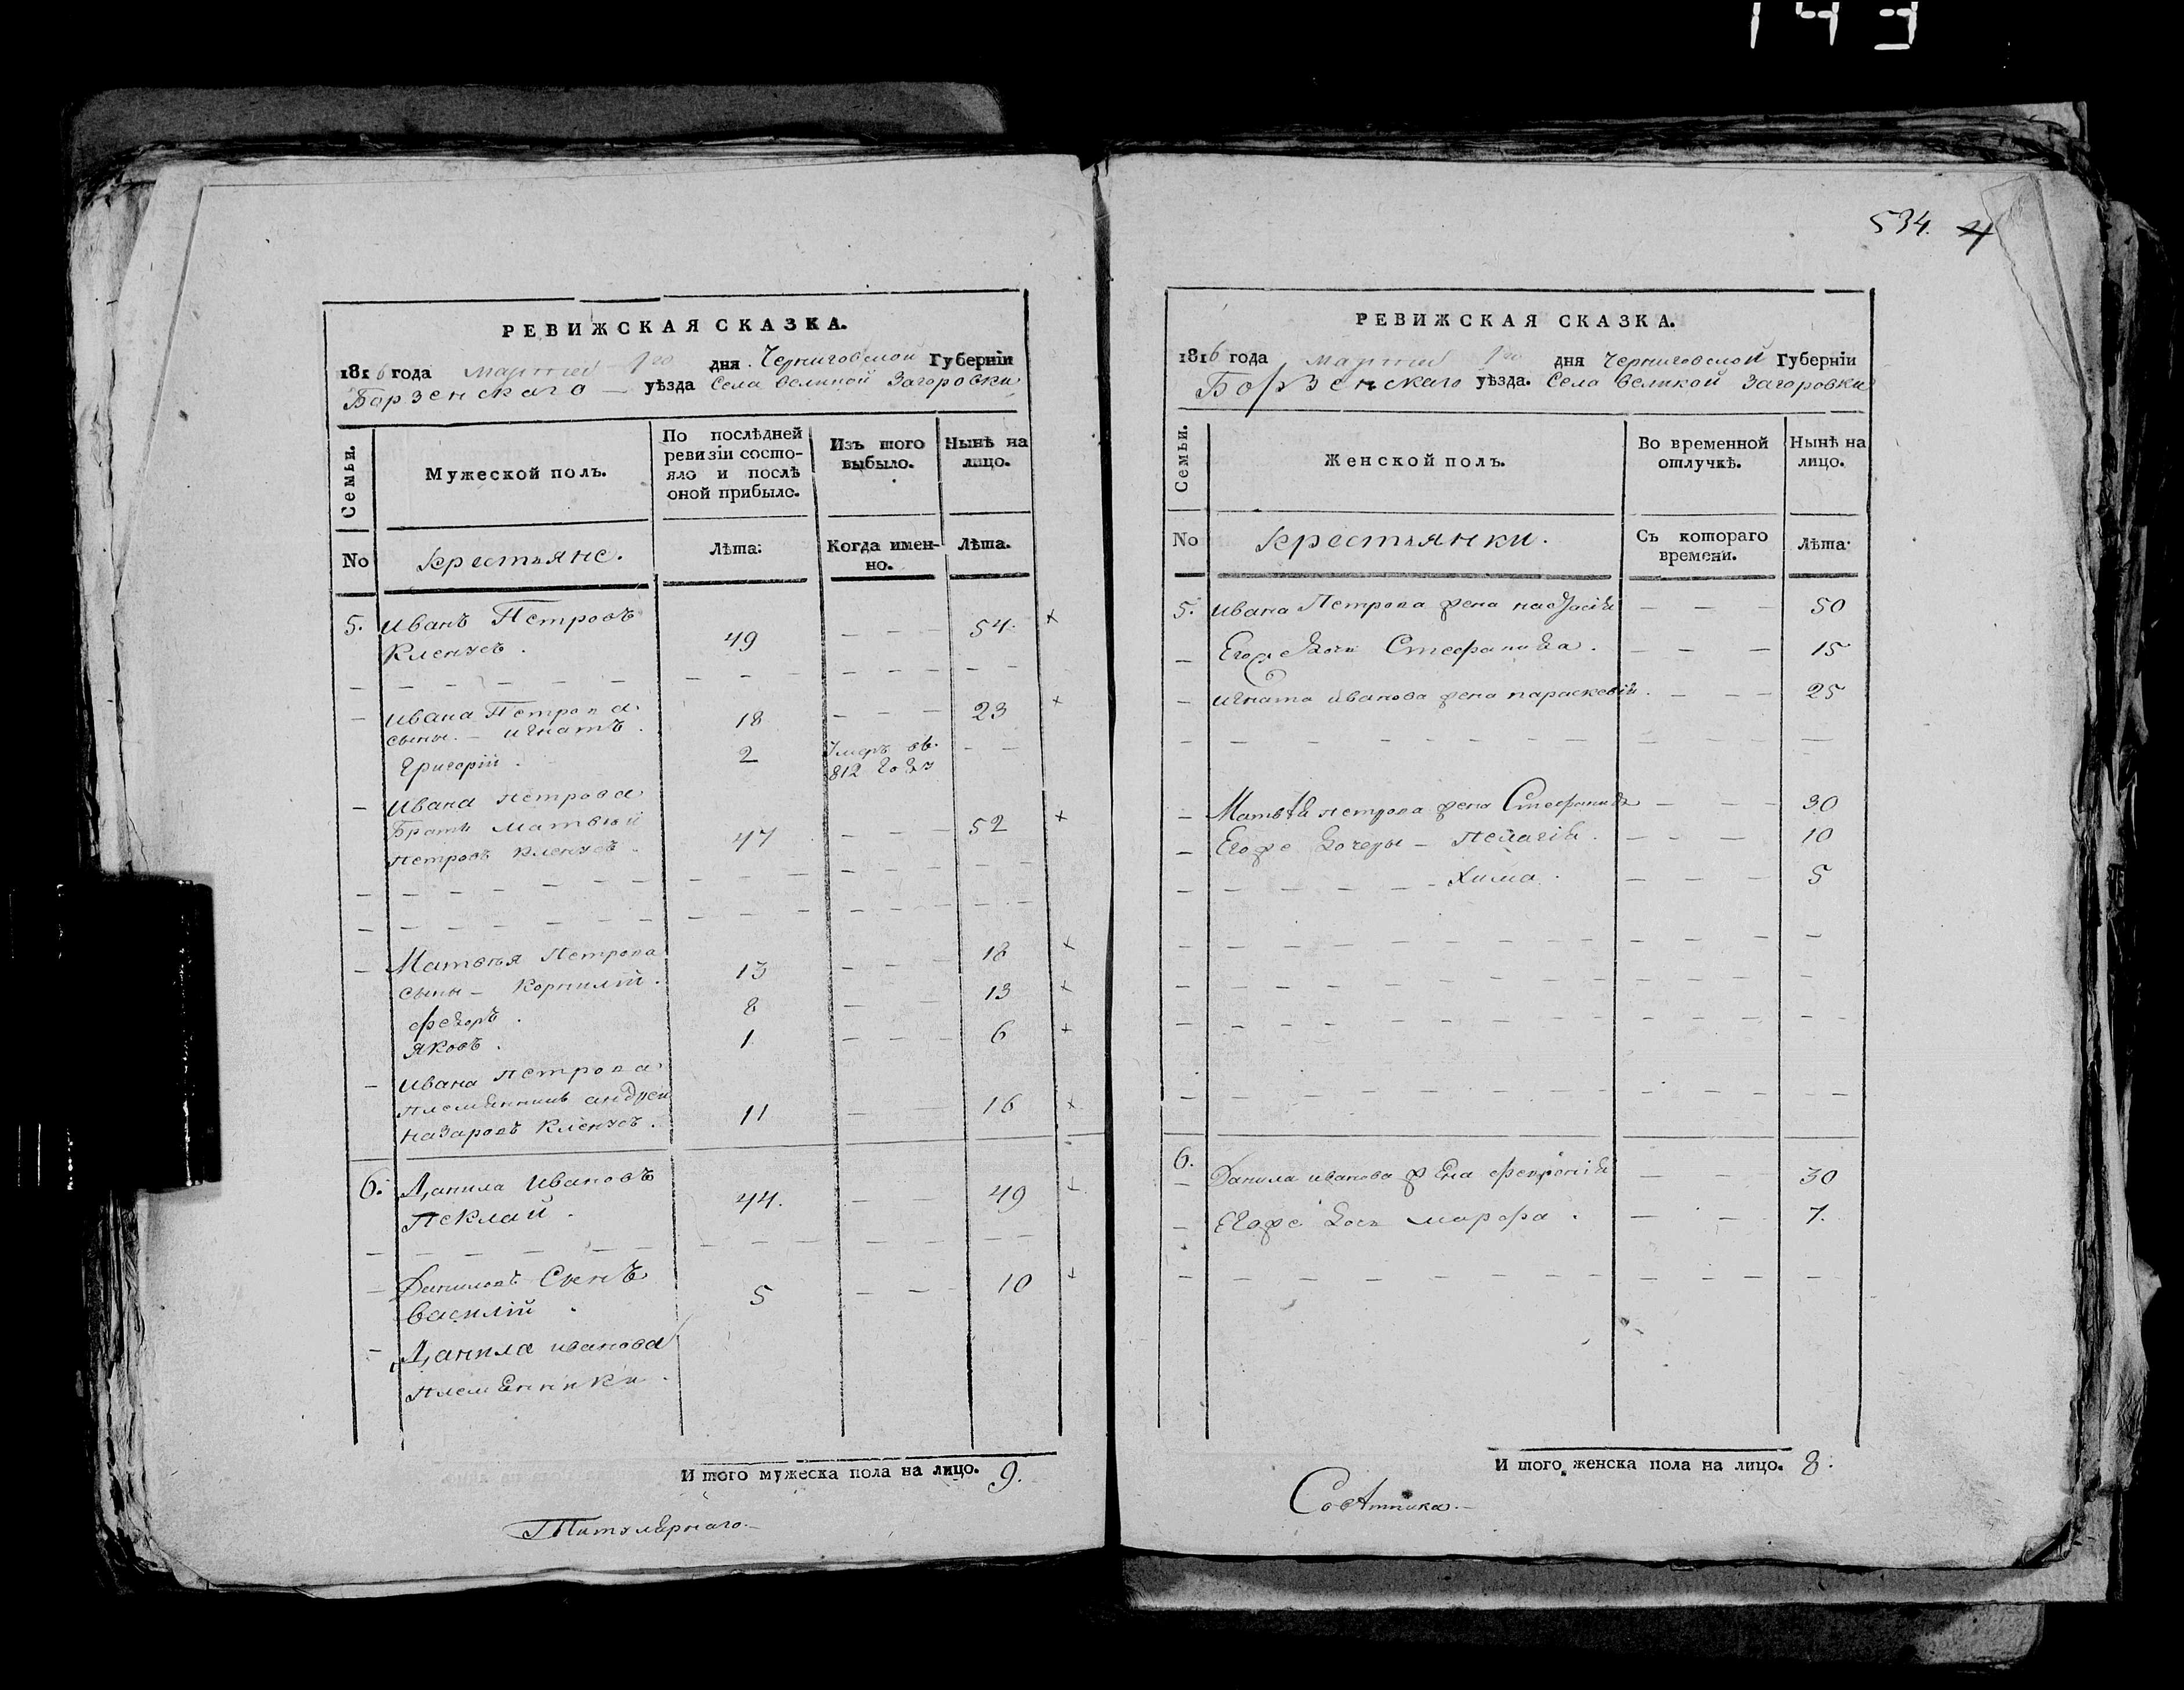 143
534. 4
РЕВИЖСКАЯ СКАЗКА.
1816 года марта 1го дня Черниговской Губерніи
Борзенскаго уѣзда Села Великой Загоровки
Семьи.
Мужеской полъ.
По послѣдней ревизіи состо-
яло и послѣ
оной прибыло.
Изъ того
выбыло.
Нынѣ на
лицо.
No
Крестьяне.
Лѣта:
Когда имен-
но.
Лѣта.
5. Иванъ Петровъ
Кленусъ. 49 — — — 54. ×
— Ивана Петрова
сыны — Игнатъ. 18 — — — 23 ×
Григорій. 2 Умеръ въ
812 году — —
— Ивана Петрова
Братъ Матвѣй
Петровъ Кленусъ. 47 — — — 52 ×
— Матвѣя Петрова
сыны — Корнилій. 13 — — 18 ×
Федоръ. 8 — — 13 ×
Яковъ. 1 — — — 6 ×
— Ивана Петрова
племянникъ Андрей
Назаровъ Кленусъ. 11 — — 16 ×
6. Данила Ивановъ
Пеклай. 44. — — 49
— Даниловъ Сынъ
Василій. 5 — — — 10
— Данила Иванова
племенники.
И того мужеска пола на лицо. 9.
Титулярнаго.—
РЕВИЖСКАЯ СКАЗКА.
1816 года марта 1го дня Черниговской Губерніи
Борзенскаго уѣзда. Села Великой Загоровки
Семьи.
Женской полъ.
Во временной
отлучкѣ.
Нынѣ на
лицо.
No
Крестьянки.
Съ котораго
времени.
Лѣта:
5. Ивана Петрова жена Настасія — — — 50
— Его же дочь Стефанида. — — — 15
— Игната Иванова жена Параскевія. — — — 25
— Матвѣя Петрова жена Стефанида — — — 30
— Его же дочеры — Пелагія. — — — 10
— Хима. — — — 5
6.
— Данила Иванова жена Февронія — — 30
— Его же дочь Марфа. — — 7.
И того женска пола на лицо. 8.
Совѣтника.—